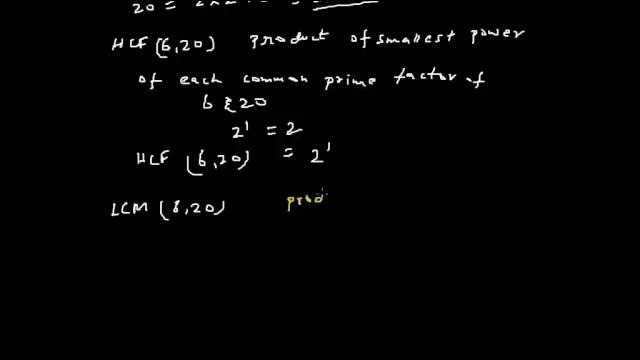 20 = 2x2
HCF (6,20) product of smallest power
of each common prime factor of
6 & 20
2¹ = 2
HCF (6,20) = 2¹
LCM (6,20) prod